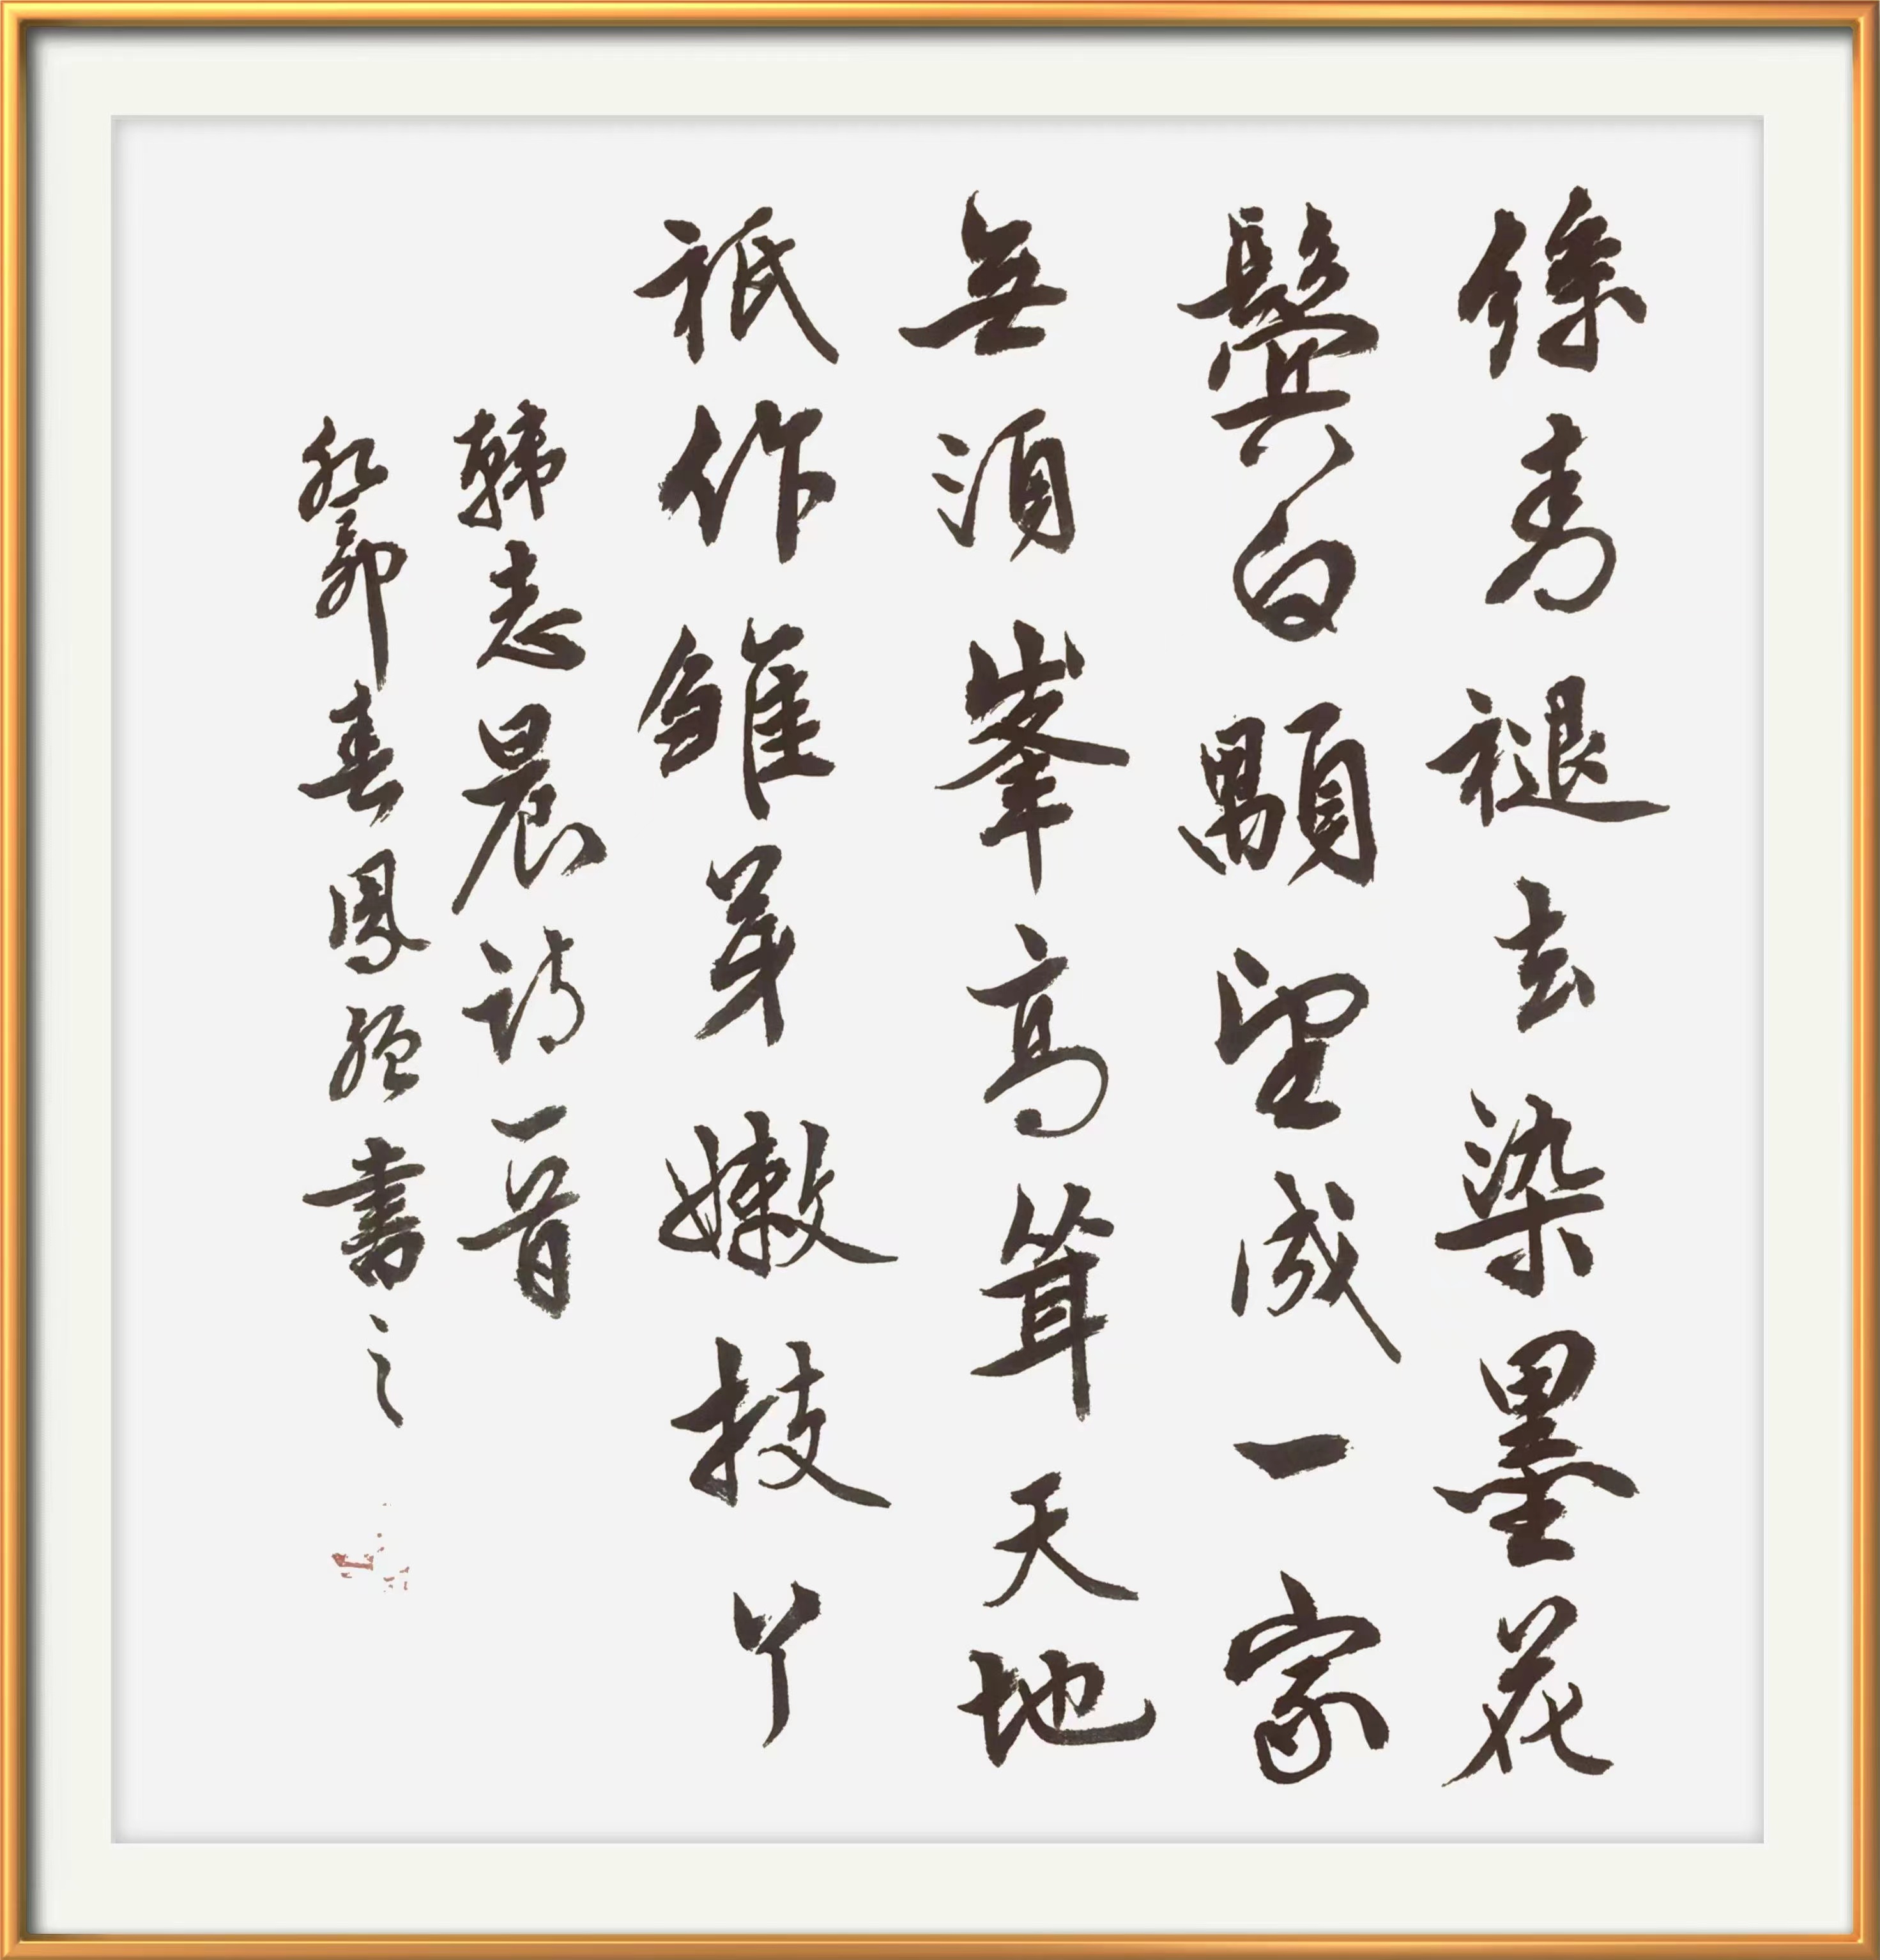 條青褪去染墨花
鬢白顒望成一家
無須峯高聳天地
祇作雛芽嫩枝丫
韓志晨詩一首
春書之